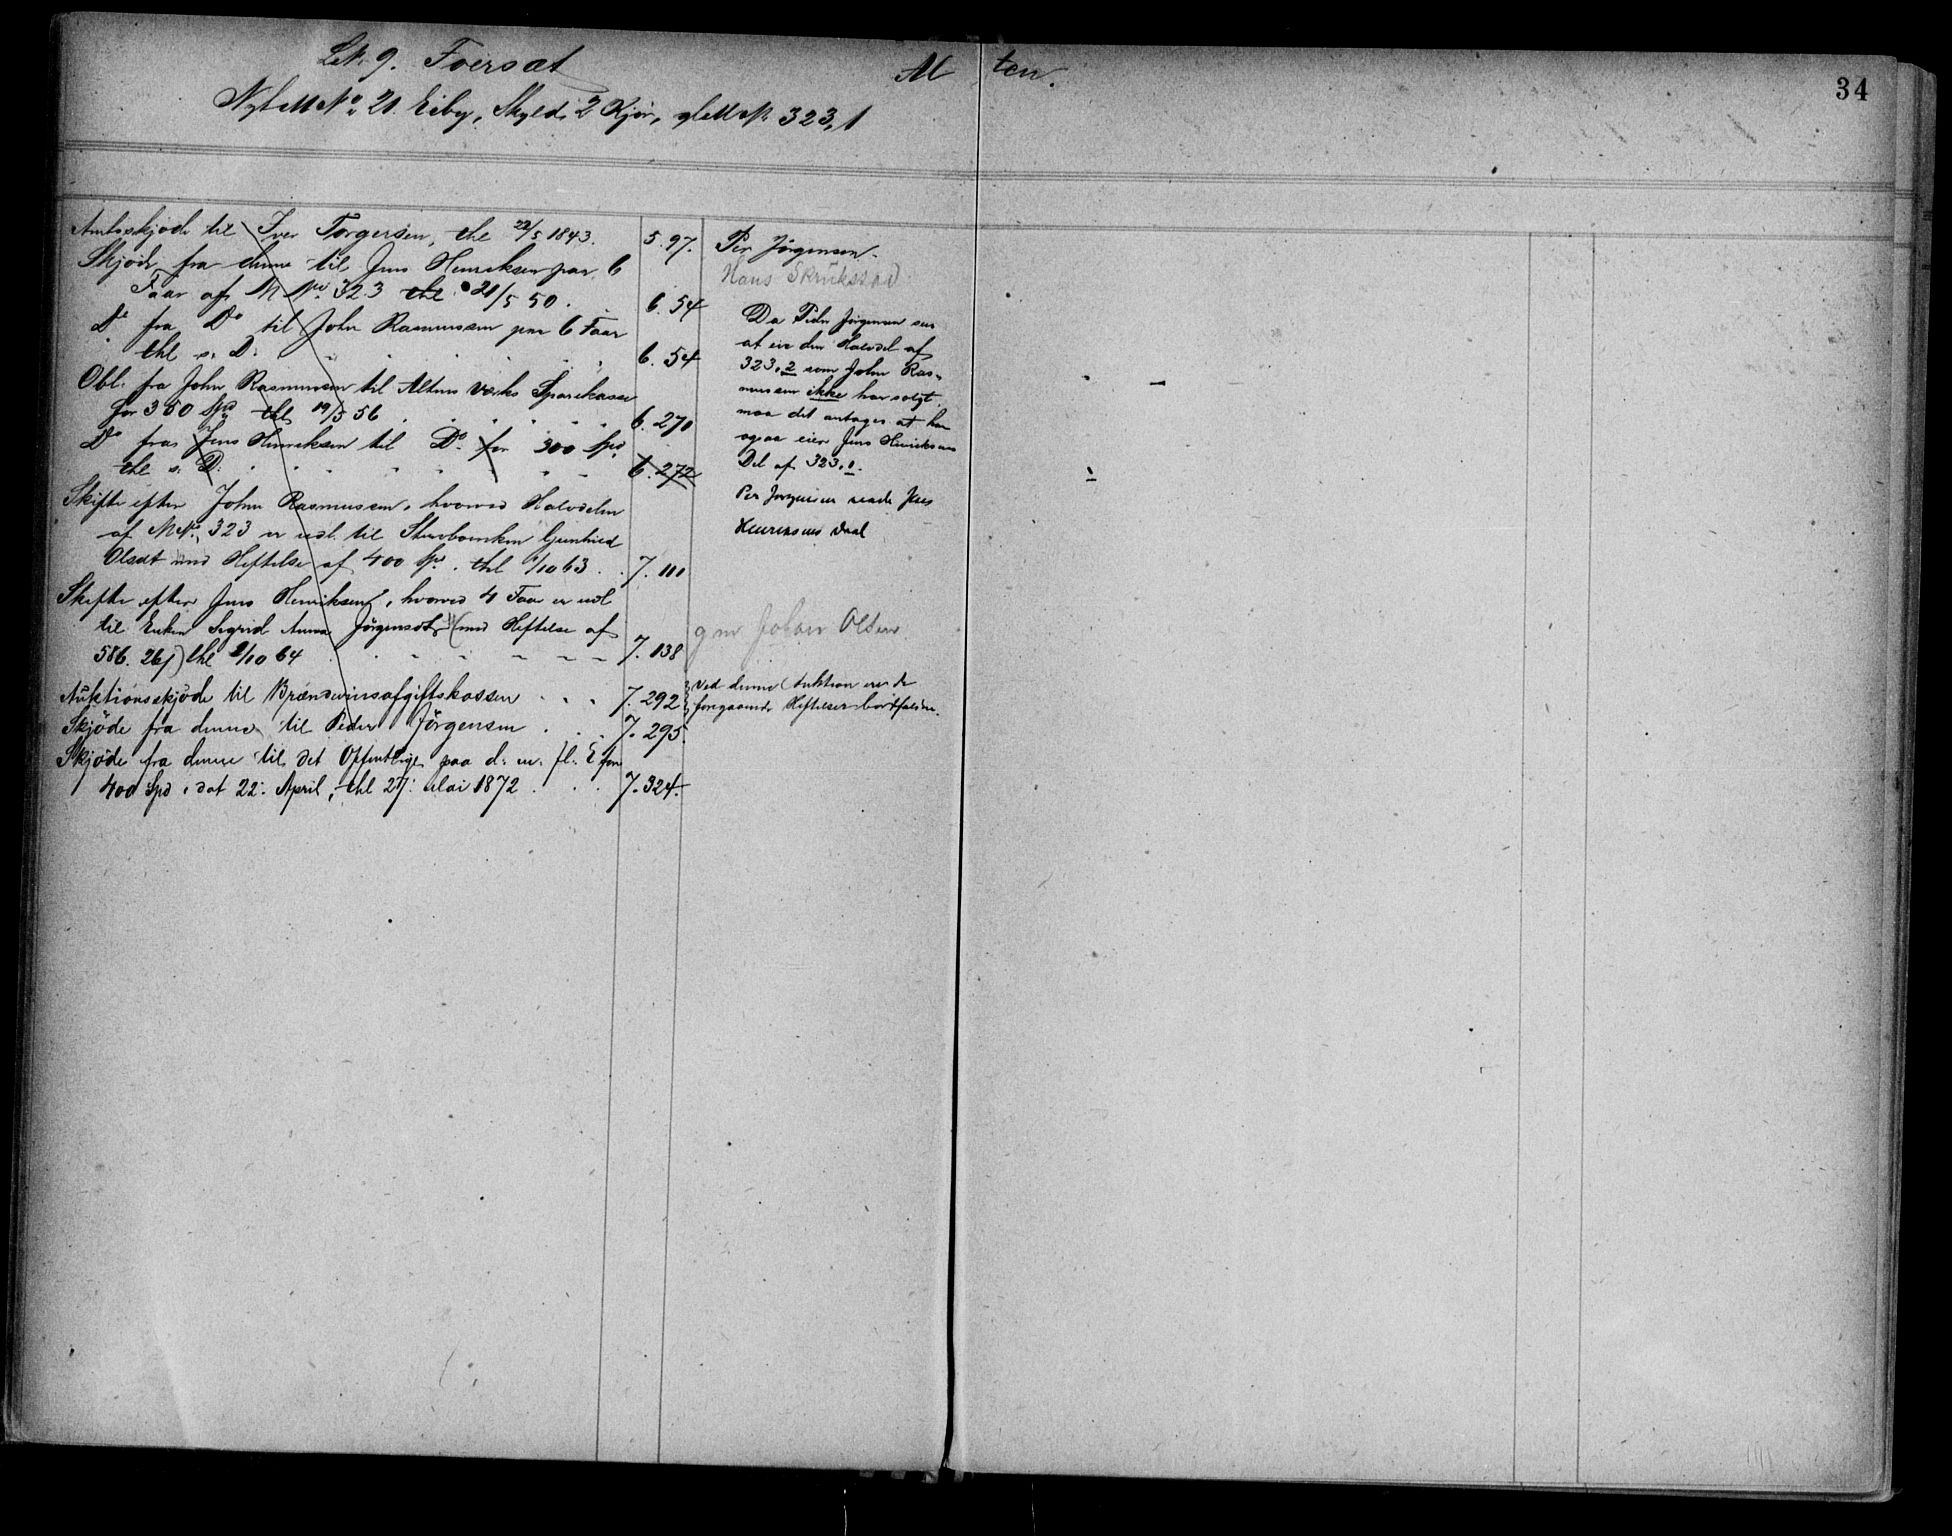 LN. 9. Foersæt Al ten. 34
Nyt M No 21. Eiby, Skyld: 2 Kjør, gl M N. 323,1
Amtsskjøde til Iver Torgersen, thl 22/5 1843. 5. 97. Per Jörgensen.
Skjøde fra denne til Jens Henriksen paa 6 Hans Skrukstad
Faar af M No. 323 thl 21/5 50. 6. 54
Do fra Do til John Rasmussen paa 6 Faar
thl s. D. 6. 54
Da Peder Jörgensen
at eie den Halvdel af
323,2 som John Ras-
mussen ikke har solgt,
maa det antages at han
ogsaa eier Jens Henriksens
Del af 323,1.
Per Jörgensen Jens
Henriksens Deel
Obl. fra John Rasmussen til Altens Værks Sparekasse
for 350 Spd thl 19/5 56 6. 270
Do fra Jens Henriksen til Do for 300 Spd
thl s. D. 6. 272
Skifte efter John Rasmussen, hvorved Halvdelen
af M No. 323 er udl. til Stervboenken Gunhild
Olsdt mod Heftelse af 400 Spd. thl 1/10 63. 7. 111
Skifte efter Jens Henriksen, hvorved 4 Faar er udl
til Enken Sigrid Anna Jörgensdt (mod Heftelse af g m Johan Olsen
586. 26 ) thl 2/10 64 7. 138
Auktionsskjøde til Brændevinsafgiftskassen 7. 292 Ved denne Auktion ere de
foregaaende Heftelser bortfaldne.
Skjöde fra denne til Peder Jörgensen 7. 295.
Skjöde fra denne til det Offentlige paa d. m. fl. E for
400 Spd, dat 22. April, thl 27. Mai 1872 7. 324.